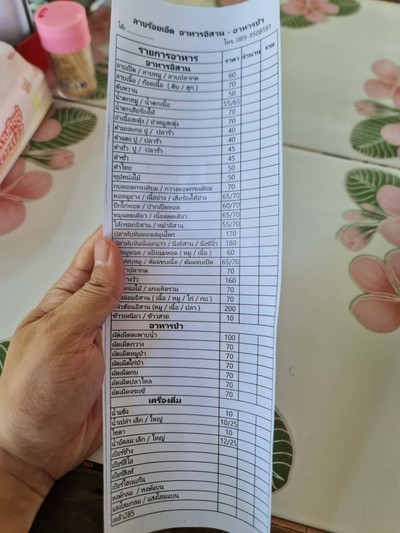 ลาบร้อยเอ็ด อาหารอีสาน - อาหารป่า
โต๊ะ โทร. 089-9508181
รายการอาหาร ราคา จำนวน รวม
อาหารอีสาน
ลาบเป็ด / ลาบหมู / ลาบปลาดุก 60
ลาบเนื้อ / ก้อยเนื้อ ( ดิบ / สุก ) 70
ตับหวาน 50
น้ำตกหมู / น้ำตกเนื้อ 55/65
น้ำตกเสือร้องไห้ 70
ยำเนื้อสะดุ้ง / ยำหมูสะดุ้ง 70
ตำมะละกอ ปู / ปลาร้า 40
ตำแตง ปู / ปลาร้า 40
ตำถั่ว ปู / ปลาร้า 45
ตำซั่ว 45
ตำไทย 50
ซุปหน่อไม้ 50
กบทอดกระเทียม / กวางทอดกระเทียม 70
คอหมูย่าง / เนื้อย่าง / เสือร้องไห้ย่าง 65/70
ปีกไก่ทอด / ปากเป็ดทอด 60/70
หมูแดดเดียว / เนื้อแดดเดียว 65/70
ไส้กรอกอีสาน / หม่ำอีสาน 55/70
ปลาทับทิมทอดสมุนไพร 170
ปลาทับทิมนึ่งมะนาว / นึ่งอีสาน / นึ่งซีอิ๊ว 180
หมูทอด / แป้งนมทอด ( หมู / เนื้อ ) 60
แซบหมู / ต้มแซบเนื้อ / ต้มแซบเป็ด 65/70
ปลาดุก 70
160
หน่อไม้ / แกงเห็ดรวม 70
อ่อมอีสาน ( เนื้อ / หมู / ไก่ / กบ ) 70
จิ้วฮ้อนอีสาน (หมู / เนื้อ / ปลา ) 200
ข้าวเหนียว / ข้าวสวย 10
อาหารป่า
ผัดเผ็ดตะพาบน้ำ 100
ผัดเผ็ดกวาง 70
ผัดเผ็ดหมูป่า 70
ผัดเผ็ดไก่ป่า 70
ผัดเผ็ดกบ 70
ผัดเผ็ดปลาไหล 70
ผัดเผ็ดจระเข้ 70
เครื่องดื่ม
น้ำแข็ง 10
น้ำเปล่า เล็ก / ใหญ่ 10/25
โซดา 10
น้ำอัดลม เล็ก / ใหญ่ 12/25
เบียร์ช้าง
เบียร์ลีโอ
เบียร์สิงห์
เบียร์ไฮเนเก้น
หงษ์กลม / หงษ์แบน
แสงโสมกลม / แสงโสมแบน
เหล้า285